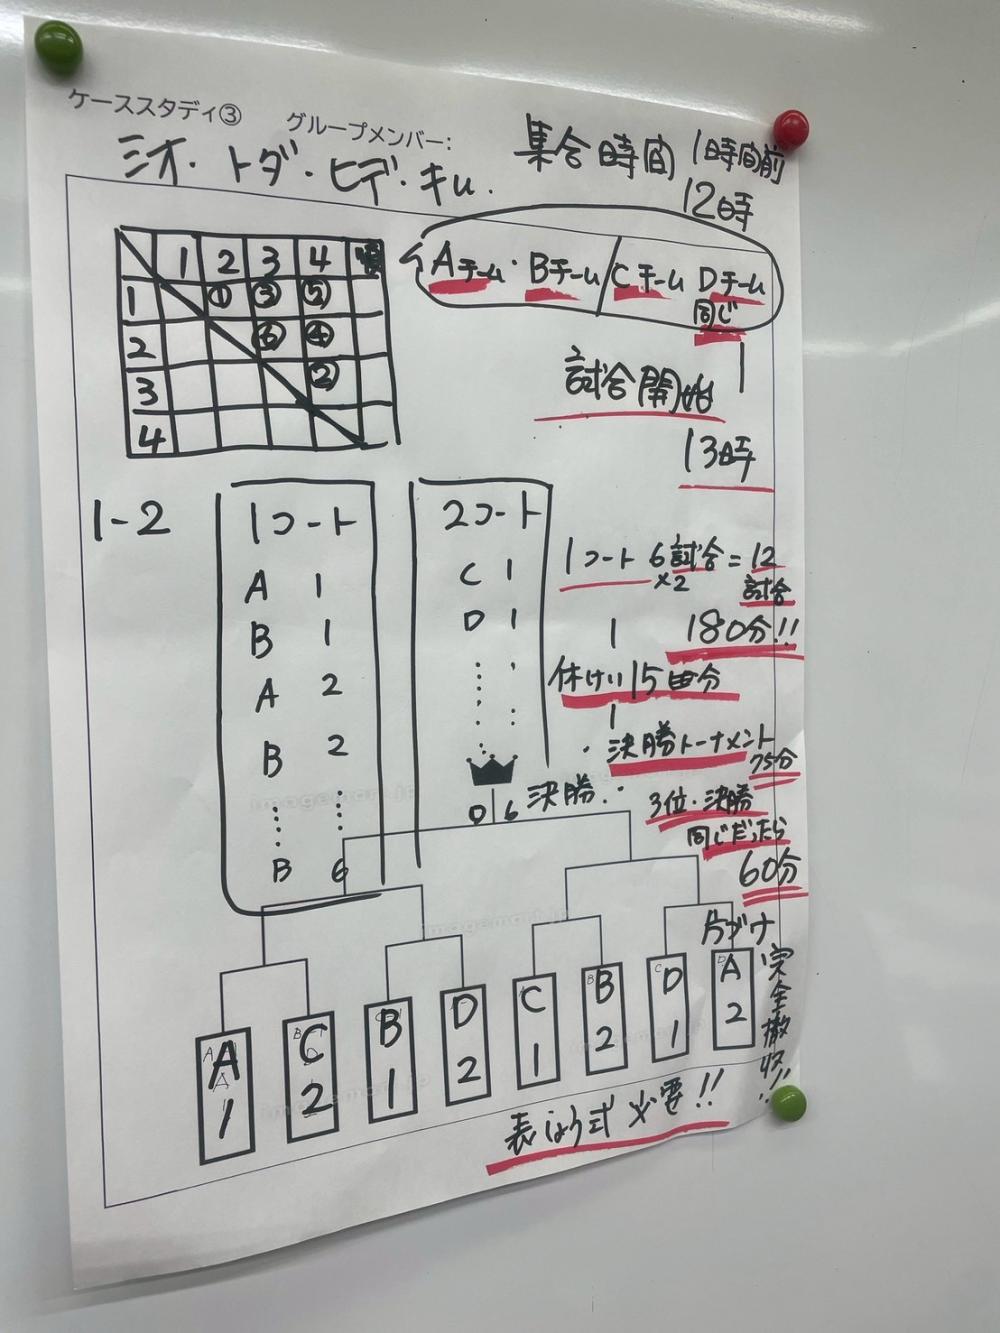 ケーススタディ③ グループメンバー:
ミオ・トダ・ヒデ・キム.
集合時間 1時間前
12時
1 2 3 4 順
1 ① ③ ⑤
2 ⑥ ④
3 ②
4
Aチーム・Bチーム/Cチーム Dチーム
同じ
試合開始
13時
1-2
1コート
A 1
B 1
A 2
B 2
B 6
2コート
C 1
D 1
D 6
1コート 6試合=12
×2 試合
180分!!
休けい15分
決勝トーナメント
75分
3位・決勝
同じだったら
60分
決勝
片づけ
完全撤収!!
A 1
C 2
B 1
D 2
C 1
B 2
D 1
A 2
表しょう式 必要!!
imagemart.jp
imagemart.jp
imagemart.jp